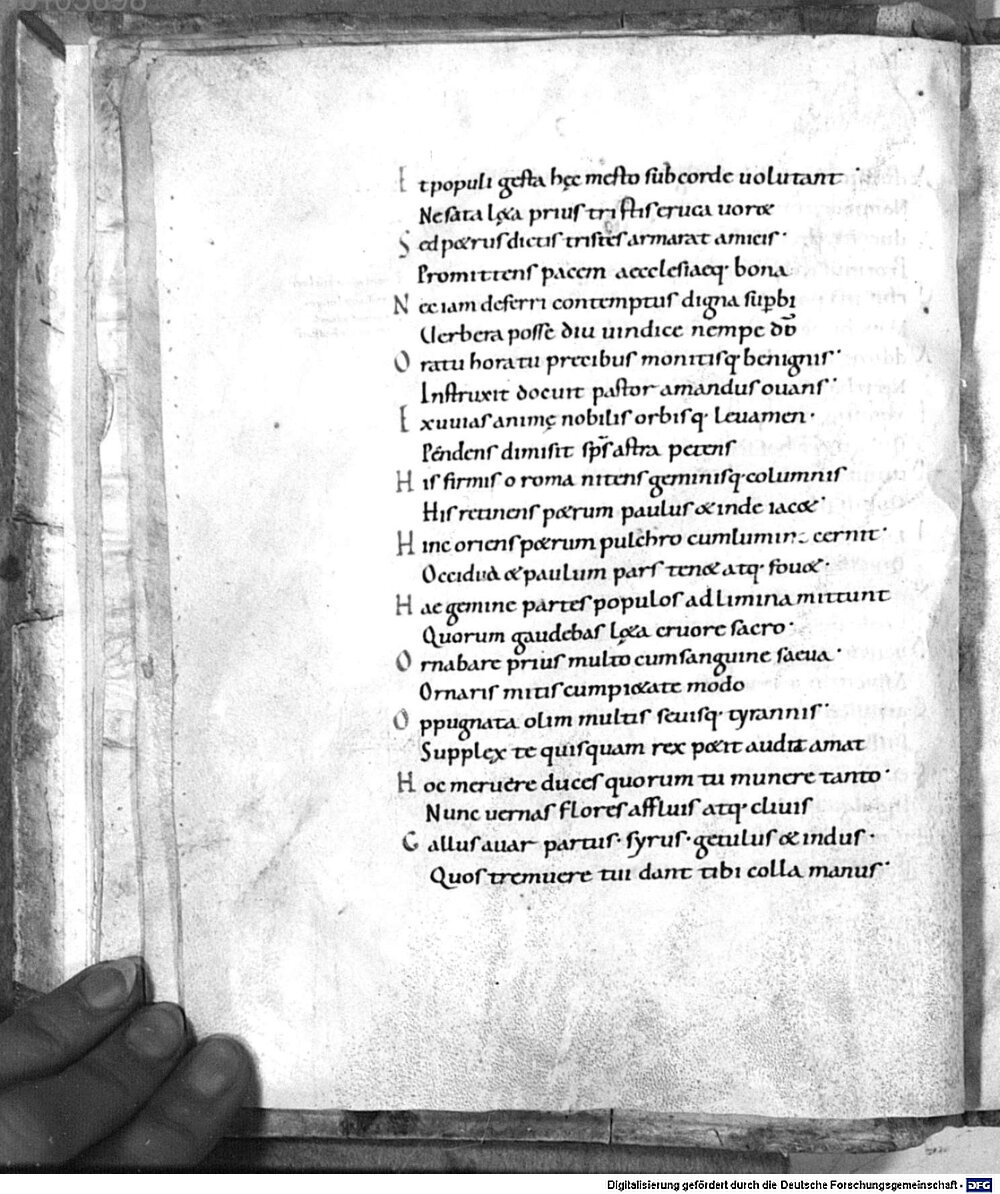 Et populi gesta hęc mesto sub corde uolutant
Ne sata lęta prius tristis eruca uoret
Sed petrus dictis tristes armarat amicis·
Promittens pacem aecclesiaeq· bona
Nec iam deferri contemptus digna sup̄bi
Verbera posse diu uindice nempe dō
Oratu horatu precibus monitisq· benignis·
Instruxit docuit pastor amandus ouans·
Exuuias animę nobilis orbisq· leuamen·
Péndens dimisit sp̄s astra petens
His firmis o roma nitens geminisq· columnis
His retinens petrum paulus et inde iacet·
Hinc oriens petrum pulchro cum lumine cernit·
Occidua et paulum pars tenet atq· fouet·
Hae gemine partes populos ad limina mittunt
Quorum gaudebas lęta cruore sacro·
Ornabare prius multo cum sanguine saeua·
Ornaris mitis cum pietate modo
Oppugnata olim multis seuisq· tyrannis·
Supplęx te quisquam rex petit audit amat
Hoc meruere duces quorum tu munere tanto·
Nunc uernas flores affluis atq· cluis
Gallus auar partus· syrus· getulus et indus·
Quos tremuere tui dant tibi colla manus·
Digitalisierung gefördert durch die Deutsche Forschungsgemeinschaft - DFG